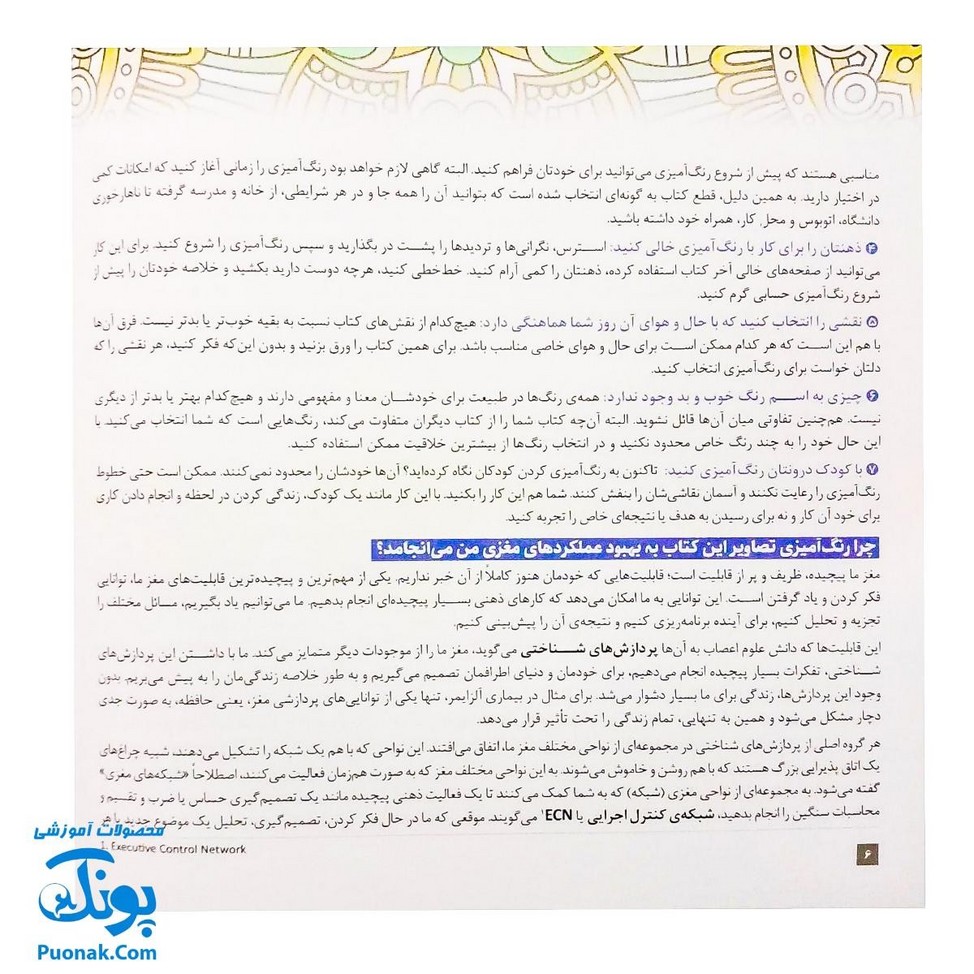 مناسبی هستند که پیش از شروع رنگ‌آمیزی می‌توانید برای خودتان فراهم کنید. البته گاهی لازم خواهد بود رنگ‌آمیزی را زمانی آغاز کنید که امکانات کمی
در اختیار دارید. به همین دلیل، قطع کتاب به گونه‌ای انتخاب شده است که بتوانید آن را همه جا و در هر شرایطی، از خانه و مدرسه گرفته تا ناهارخوری
دانشگاه، اتوبوس و محل کار، همراه خود داشته باشید.
۴ ذهنتان را برای کار با رنگ‌آمیزی خالی کنید: استرس، نگرانی‌ها و تردیدها را پشت در بگذارید و سپس رنگ‌آمیزی را شروع کنید. برای این کار
می‌توانید از صفحه‌های خالی آخر کتاب استفاده کرده، ذهنتان را کمی آرام کنید. خط‌خطی کنید، هرچه دوست دارید بکشید و خلاصه خودتان را پیش از
شروع رنگ‌آمیزی حسابی گرم کنید.
۵ نقشی را انتخاب کنید که با حال و هوای آن روز شما هماهنگی دارد: هیچ‌کدام از نقش‌های کتاب نسبت به بقیه خوب‌تر یا بدتر نیست. فرق آن‌ها
با هم این است که هر کدام ممکن است برای حال و هوای خاصی مناسب باشد. برای همین کتاب را ورق بزنید و بدون این‌که فکر کنید، هر نقشی را که
دلتان خواست برای رنگ‌آمیزی انتخاب کنید.
۶ چیزی به اسم رنگ خوب و بد وجود ندارد: همه‌ی رنگ‌ها در طبیعت برای خودشان معنا و مفهومی دارند و هیچ‌کدام بهتر یا بدتر از دیگری
نیست. هم‌چنین تفاوتی میان آن‌ها قائل نشوید. البته آن‌چه کتاب شما را از کتاب دیگران متفاوت می‌کند، رنگ‌هایی است که شما انتخاب می‌کنید. با
این حال خود را به چند رنگ خاص محدود نکنید و در انتخاب رنگ‌ها از بیشترین خلاقیت ممکن استفاده کنید.
۷ با کودک درونتان رنگ‌آمیزی کنید: تاکنون به رنگ‌آمیزی کردن کودکان نگاه کرده‌اید؟ آن‌ها خودشان را محدود نمی‌کنند. ممکن است حتی خطوط
رنگ‌آمیزی را رعایت نکنند و آسمان نقاشی‌شان را بنفش کنند. شما هم این کار را بکنید. با این کار مانند یک کودک، زندگی کردن در لحظه و انجام دادن کاری
برای خود آن کار و نه برای رسیدن به هدف یا نتیجه‌ای خاص را تجربه کنید.
چرا رنگ‌آمیزی تصاویر این کتاب به بهبود عملکردهای مغزی من می‌انجامد؟
مغز ما پیچیده، ظریف و پر از قابلیت است؛ قابلیت‌هایی که خودمان هنوز کاملاً از آن خبر نداریم. یکی از مهم‌ترین و پیچیده‌ترین قابلیت‌های مغز ما، توانایی
فکر کردن و یاد گرفتن است. این توانایی به ما امکان می‌دهد که کارهای ذهنی بسیار پیچیده‌ای انجام بدهیم. ما می‌توانیم یاد بگیریم، مسائل مختلف را
تجزیه و تحلیل کنیم، برای آینده برنامه‌ریزی کنیم و نتیجه‌ی آن را پیش‌بینی کنیم.
این قابلیت‌ها که دانش علوم اعصاب به آن‌ها پردازش‌های شناختی می‌گوید، مغز ما را از موجودات دیگر متمایز می‌کند. ما با داشتن این پردازش‌های
شناختی، تفکرات بسیار پیچیده انجام می‌دهیم، برای خودمان و دنیای اطرافمان تصمیم می‌گیریم و به طور خلاصه زندگی‌مان را به پیش می‌بریم. بدون
وجود این پردازش‌ها، زندگی برای ما بسیار دشوار می‌شد. برای مثال در بیماری آلزایمر، تنها یکی از توانایی‌های پردازشی مغز، یعنی حافظه، به صورت جدی
دچار مشکل می‌شود و همین به تنهایی، تمام زندگی را تحت تأثیر قرار می‌دهد.
هر گروه اصلی از پردازش‌های شناختی در مجموعه‌ای از نواحی مختلف مغز ما، اتفاق می‌افتند. این نواحی که با هم یک شبکه را تشکیل می‌دهند، شبیه چراغ‌های
یک اتاق پذیرایی بزرگ هستند که با هم روشن و خاموش می‌شوند. به این نواحی مختلف مغز که به صورت هم‌زمان فعالیت می‌کنند، اصطلاحاً «شبکه‌های مغزی»
گفته می‌شود. به مجموعه‌ای از نواحی مغزی (شبکه) که به شما کمک می‌کنند تا یک فعالیت ذهنی پیچیده مانند یک تصمیم‌گیری حساس یا ضرب و تقسیم و
محاسبات سنگین را انجام بدهید، شبکه‌ی کنترل اجرایی یا ECN¹ می‌گویند. موقعی که ما در حال فکر کردن، تصمیم‌گیری، تحلیل یک موضوع جدید یا هر
1. Executive Control Network
۶
محصولات آموزشی
پونک
Puonak.Com